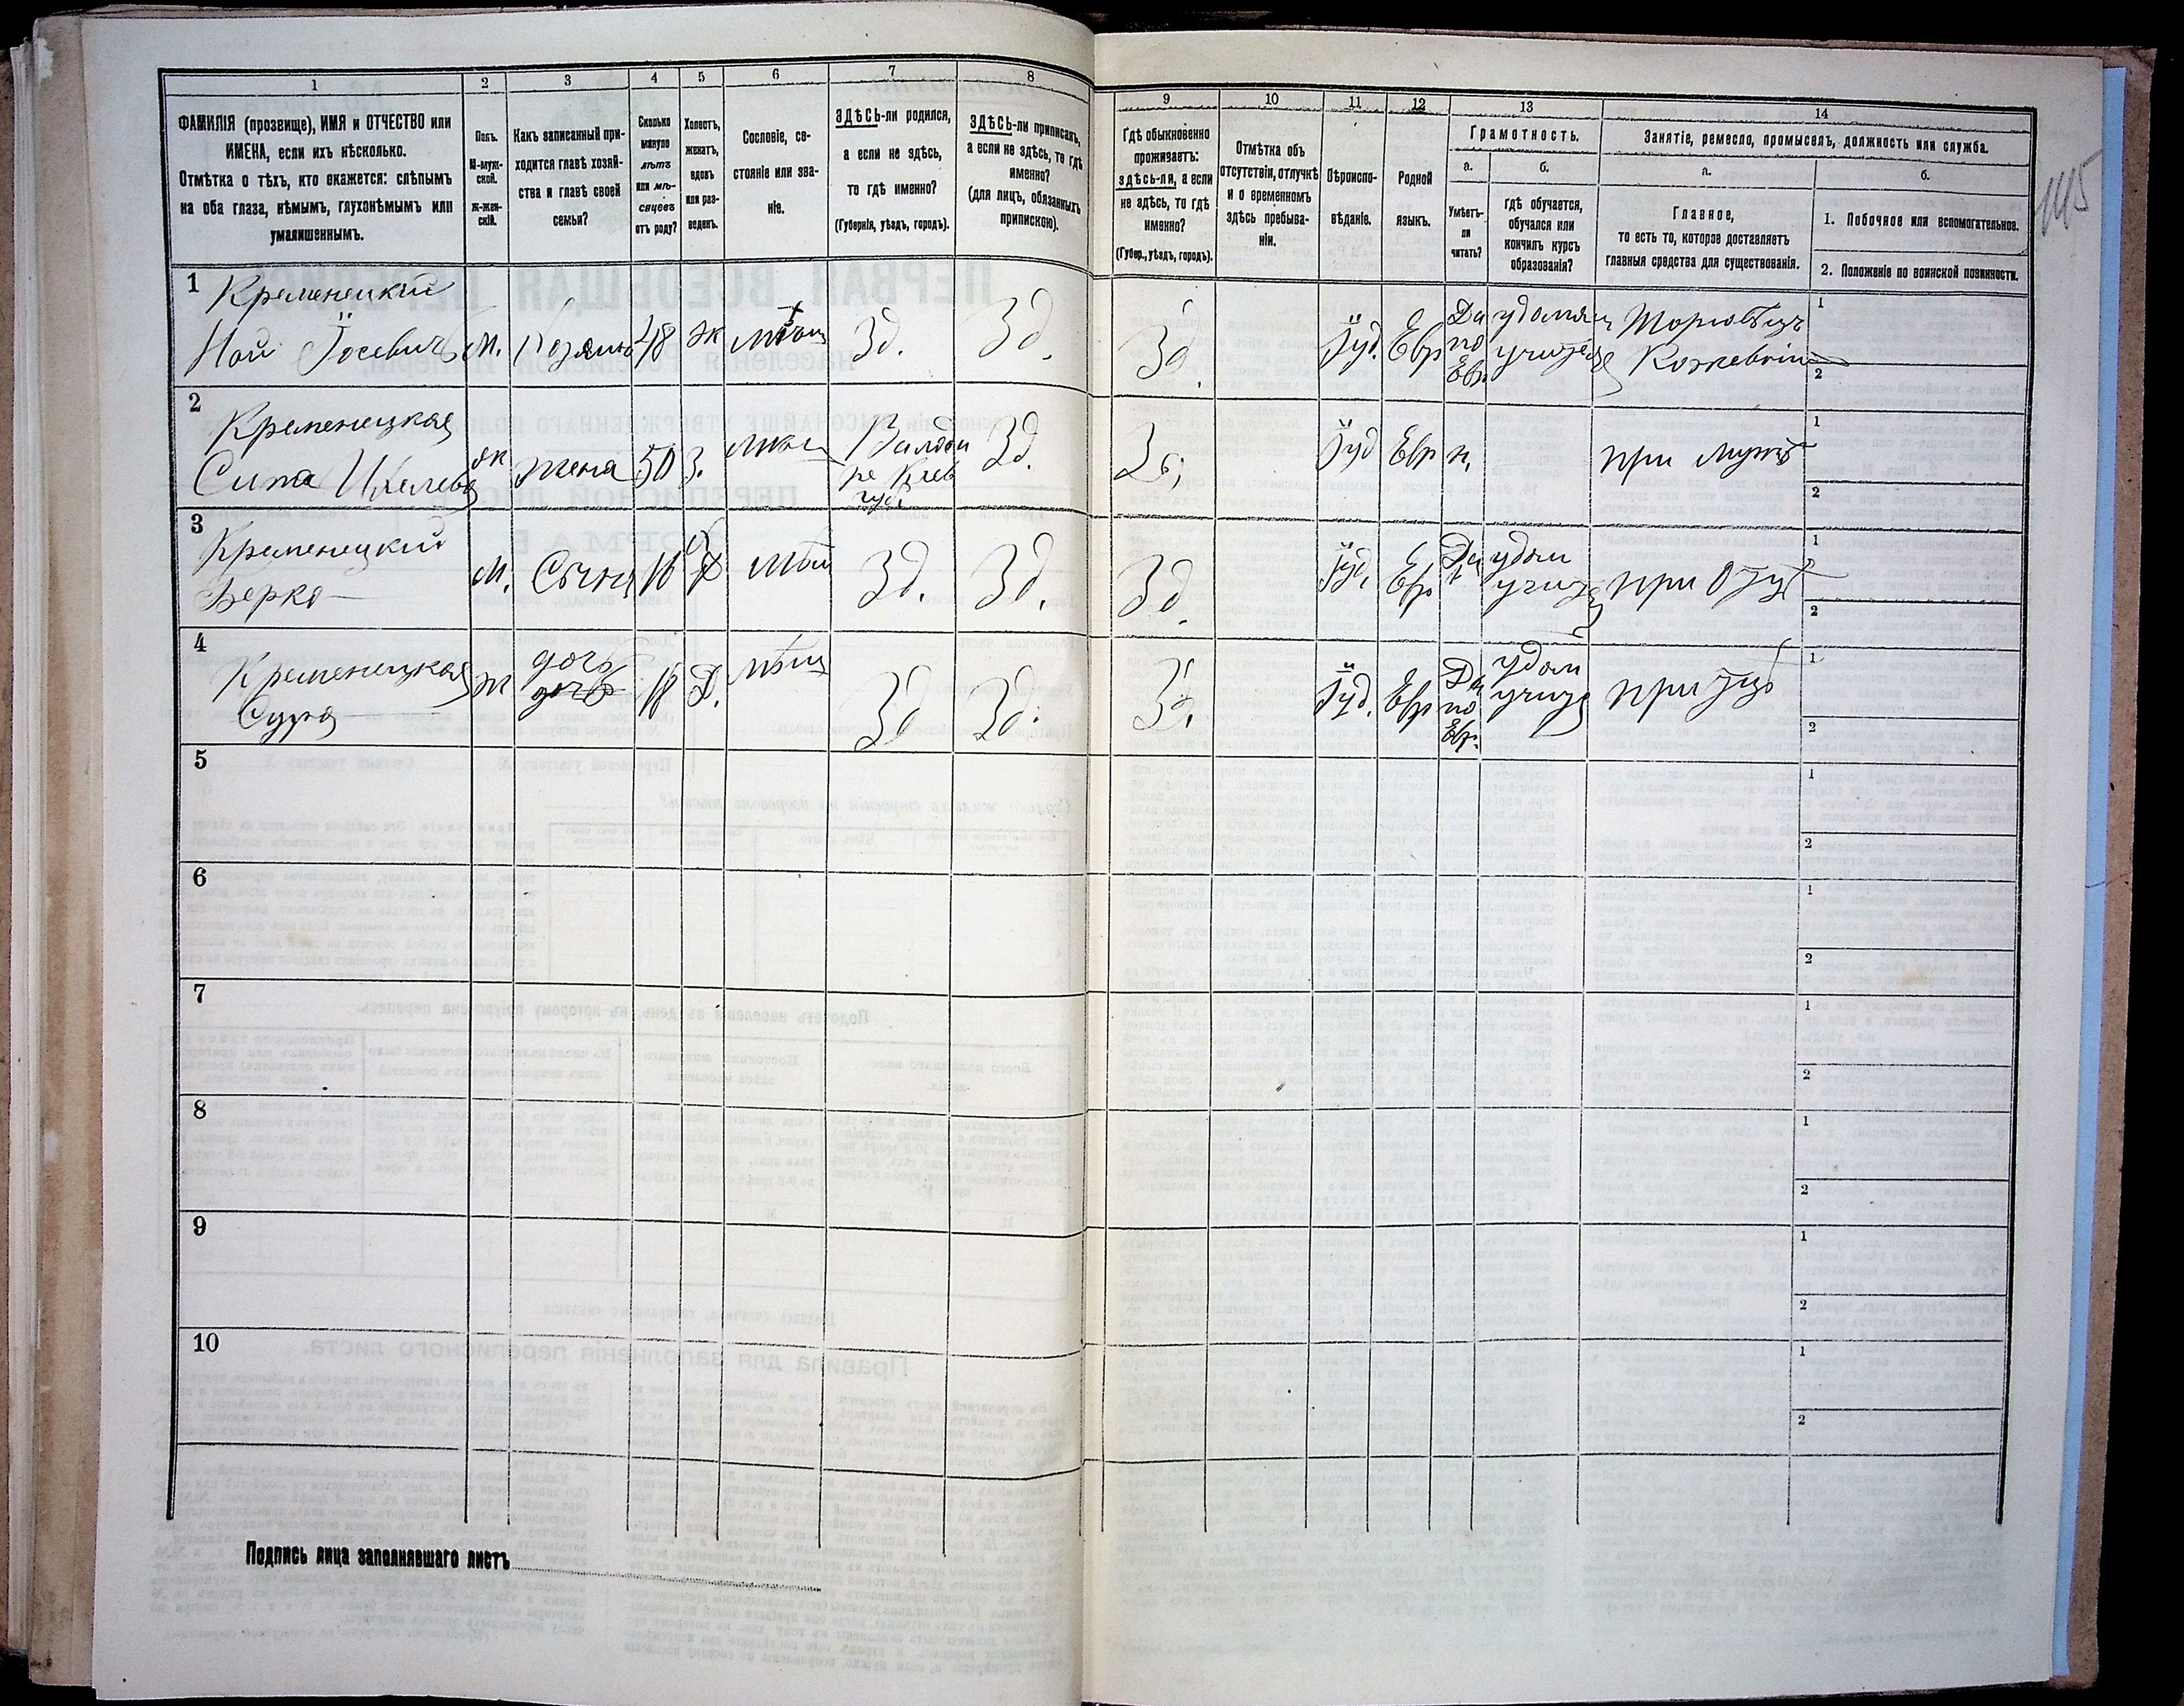 1
2
3
4
5
6
7
8
ФАМИЛІЯ (прозвище), ИМЯ и ОТЧЕСТВО или
ИМЕНА, если ихъ нѣсколько.
Отмѣтка о тѣхъ, кто окажется: слѣпымъ
на оба глаза, нѣмымъ, глухонѣмымъ или
умалишеннымъ.
Полъ.
М-муж-
ской.
Ж-жен-
скій.
Какъ записанный при-
ходится главѣ хозяй-
ства и главѣ своей
семьи?
Сколько
минуло
лѣтъ
или мѣ-
сяцевъ
отъ роду?
Холостъ,
женатъ,
вдовъ
или раз-
веденъ.
Сословіе, со-
стояніе или зва-
ніе.
ЗДѢСЬ-ли родился,
а если не здѣсь,
то гдѣ именно?
(Губернія, уѣздъ, городъ).
ЗДѢСЬ-ли приписанъ,
а если не здѣсь, то гдѣ
именно?
(для лицъ, обязанныхъ
припискою).
1 Кременецкій
Ной Іосевичъ М. Хозяинъ 48 Ж Мѣщ Зд. Зд.
2
Кременецкая
Сипа Ицелева ж жена 50 З. Зд.
Киев
губ.
3
Кременецкій
Берко М. Сынъ 16 Х Мѣщ Зд. Зд.
4
Кременецкая
Сура ж дочь 18 Д. Мѣщ Зд Зд.
5
6
7
8
9
10
Подпись лица заполнявшаго листъ
9
10
11
12
13
14
Гдѣ обыкновенно
проживаетъ:
здѣсь-ли, а если
не здѣсь, то гдѣ
именно?
(Губер., уѣздъ, городъ).
Отмѣтка объ
отсутствіи, отлучкѣ
и о временномъ
здѣсь пребыва-
ніи.
Вѣроиспо-
вѣданіе.
Родной
языкъ.
Грамотность.
а.
Умѣетъ-
ли
читать?
б.
Гдѣ обучается,
обучался или
кончилъ курсъ
образованія?
Занятіе, ремесло, промыселъ, должность или служба.
а.
Главное,
то есть то, которое доставляетъ
главныя средства для существованія.
б.
1. Побочное или вспомогательное.
2. Положеніе по воинской повинности.
145
Зд. Іуд. Евр Да
по
Евр.
Торговецъ
1
2
Зд. Іуд Евр н. при мужѣ
1
2
Зд. Іуд. Евр Да при Отцѣ
1
2
Зд. Іуд. Евр Да
по
Евр.
при Отцѣ
1
2
1
2
1
2
1
2
1
2
1
2
1
2